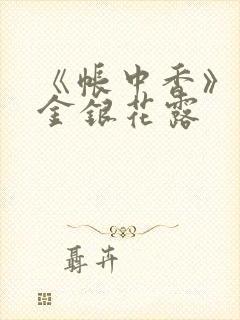 《帐中香》
金银花露
聂卉